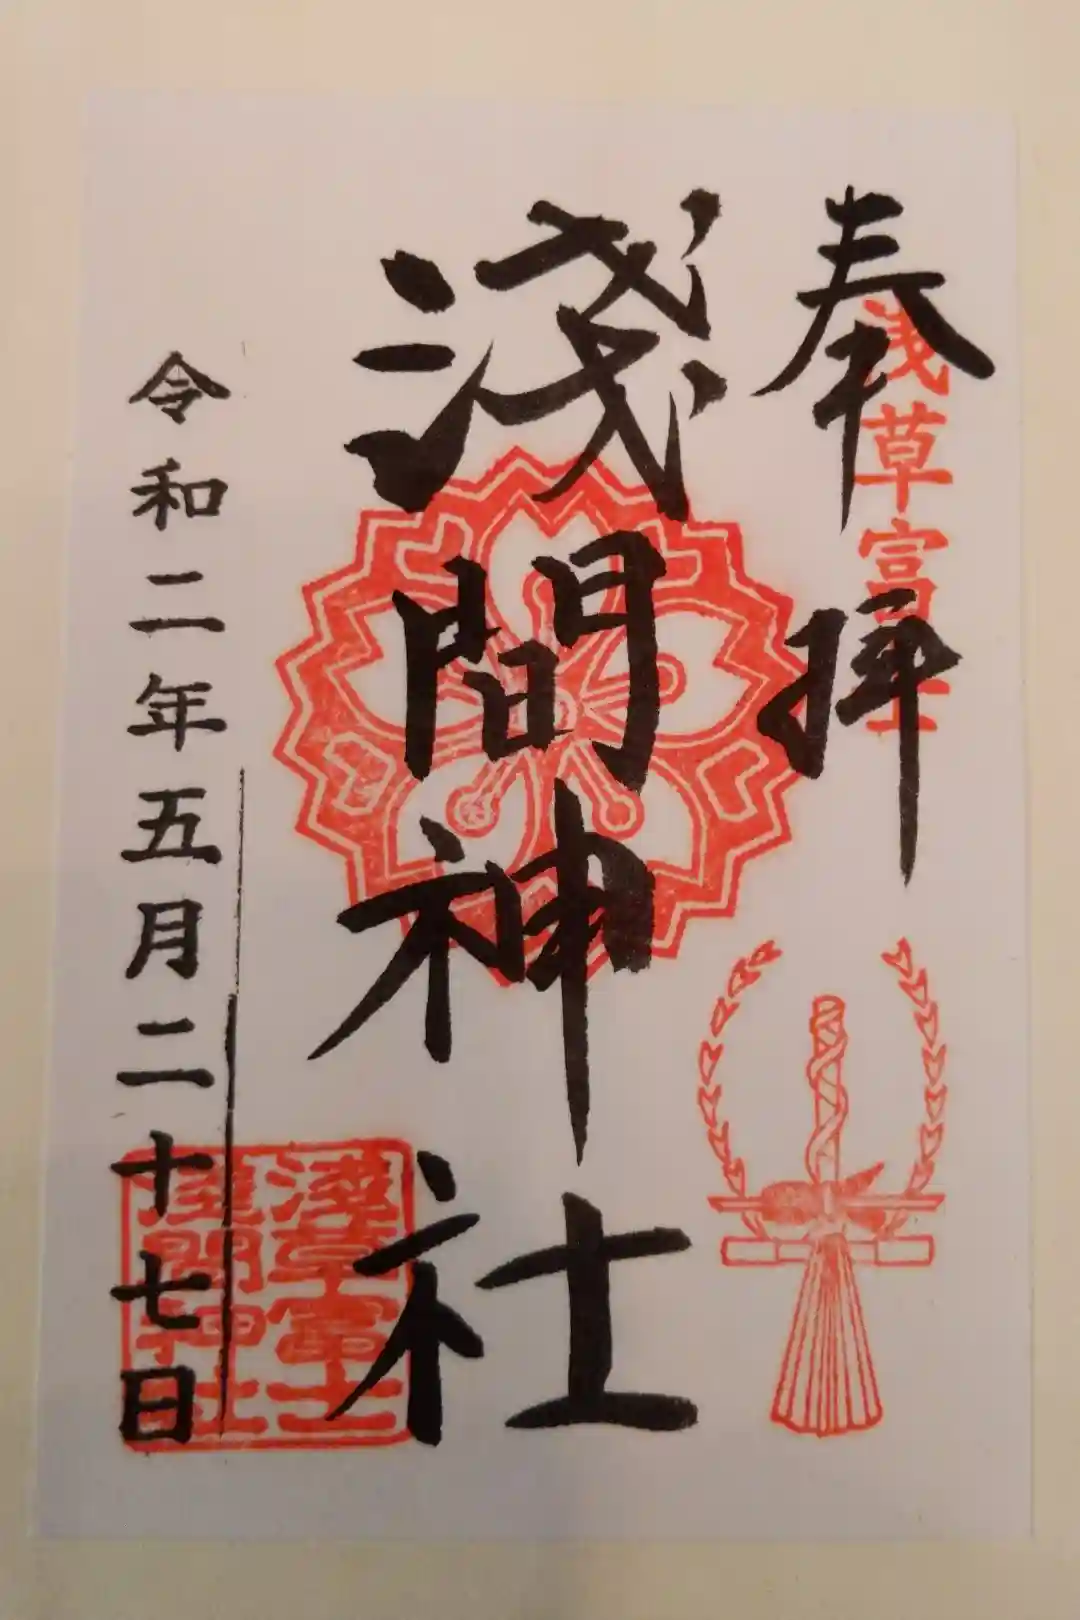 奉拝
浅草富士
淺間神社
淺草富士
淺間神社
令和二年五月二十七日